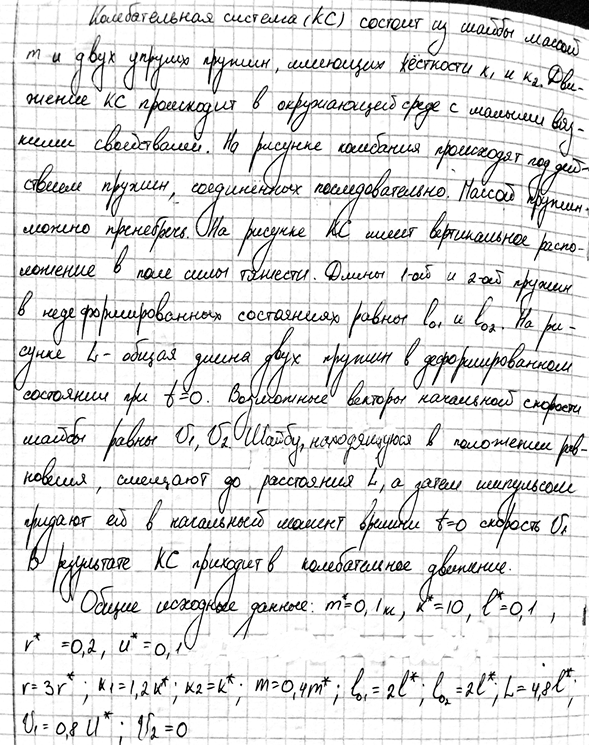 Колебательная система (КС) состоит из шайбы массой
m и двух упругих пружин, имеющих жёсткости к₁ и к₂. Дви-
жение КС происходит в окружающей среде с малыми вяз-
кими свойствами. На рисунке колебания происходят под дей-
ствием пружин, соединённых последовательно. Массой пружин
можно пренебречь. На рисунке КС имеет вертикальное распо-
ложение в поле силы тяжести. Длины 1-ой и 2-ой пружин
в недеформированных состояниях равны l₀₁ и l₀₂. На ри-
сунке L - общая длина двух пружин в деформированном
состоянии при t=0. Возможные векторы начальной скорости
шайбы равны υ₁, υ₂ Шайбу, находящуюся в положении рав-
новесия, смещают до расстояния L, а затем импульсом
придают ей в начальный момент времени t=0 скорость υ₁
В результате КС приходит в колебательное движение.
Общие исходные данные: m*=0,1кг, к*=10, l*=0,1,
r* =0,2, u*=0,1
r=3r*; к₁=1,2к*; к₂=к*; m=0,4m*; l₀₁=2l*; l₀₂=2l*; L=4,8l*;
υ₁=0,8 u*; υ₂=0